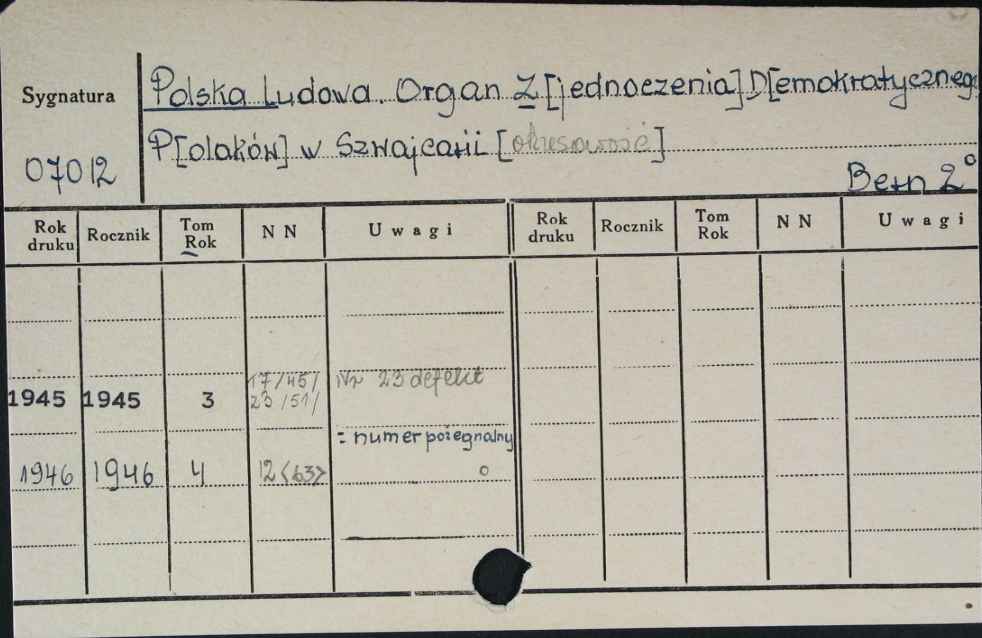 Sygnatura
07012
Polska Ludowa. Organ Z[jednoczenia] D[emokratycznego
P[olaków] w Szwajcarii [okresowość]
Bern 2°
Rok druku Rocznik Tom Rok NN Uwagi Rok druku Rocznik Tom Rok NN Uwagi
17/45/ Nr 23 defekt
1945 1945 3 23/51/
= numer pożegnalny
1946 1946 4 12<63> °